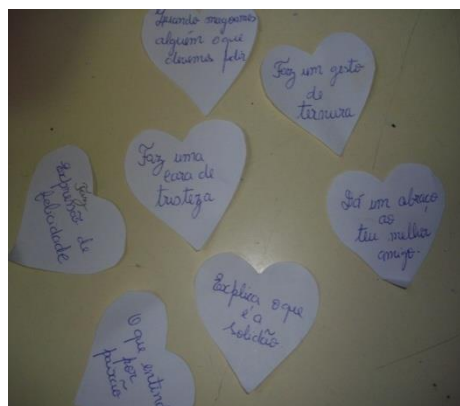 Quando magoamos
alguém o que
devemos fazer
Faz um gesto
de
ternura
Faz uma
cara de
tristeza
Faz
Expressão de
felicidade
Dá um abraço
ao
teu melhor
amigo.
Explica o que
é a
solidão
O que
por
paixão